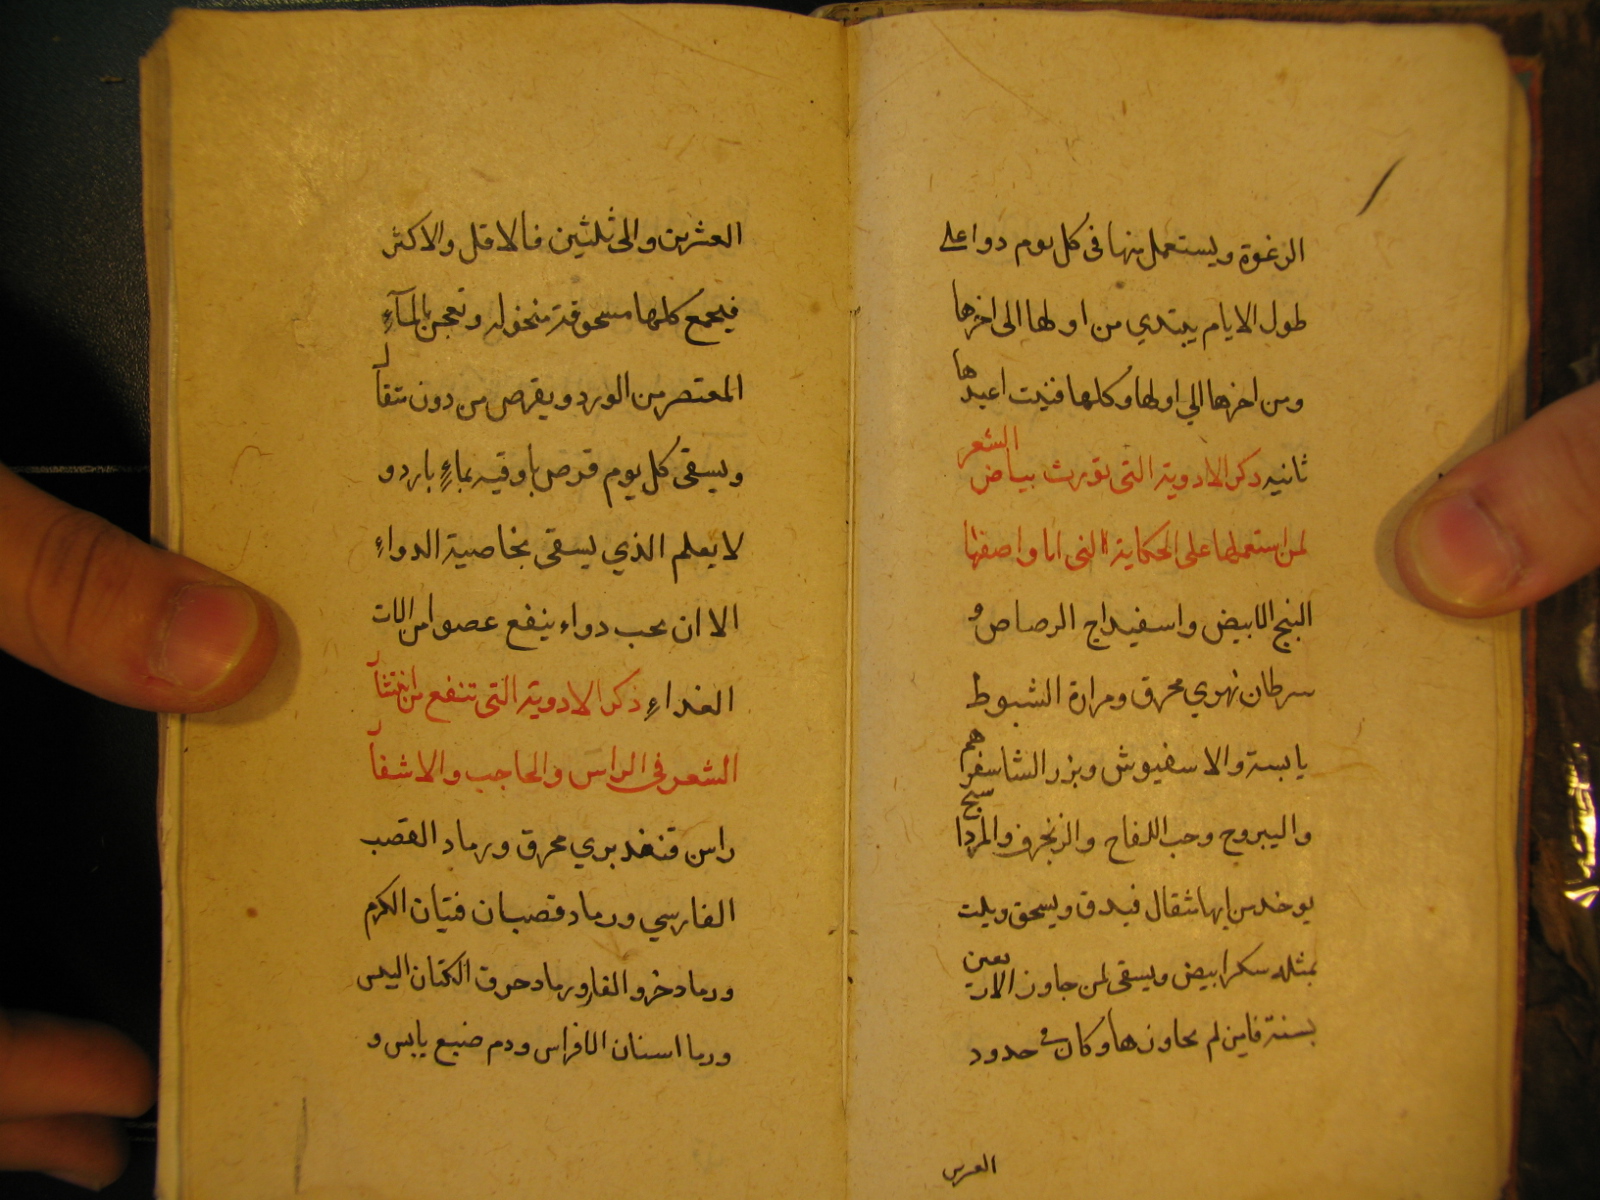 الرغوة ويستعمل منها فى كل يوم دوا على
طول الايام يبتدي من اولها الى اخرها
ومن اخرها الي اولها وكلها فنيت اعيدها
ثانيه ذكر الادوية التى تورث بياض الشعر
لمن استعملها على الحكاية التى انا واصفها
البنج الابيض واسفيداج الرصاص و
سرطان نهري محرق ومرارة الشبوط
يابسة والاسفيوش وبزر الشاسفرهم
واليبروح وحب اللفاح والزنجرف والمرداسنج
يوخذ من ايها مثقال فيدق ويسحق ويلت
بمثله سكر ابيض ويسقى لمن جاوز الاربعين
بسنة فاين لم يجاوزها وكان فى حدود
العشرين
العشرين والى ثلثين فالاقل والاكثر
فيجمع كلها مسحوقة منخوله وتعجن بالمآء
المعتصر من الورد ويقرص من دون مثقال
ويسقى كل يوم قرص باوقيه بماء بارد و
لا يعلم الذي يسقى بخاصية الدواء
الا ان يحب دواء ينفع عضوا من الات
الغذاء ذكر الادوية التى تنفع من انتثار
الشعر فى الراس والحاجب والاشفار
راس قنفذ بري محرق ورماد القصب
الفارسي ورماد قصبان فتيان الكرم
ورماد خرو الفار ورماد حرق الكتان اليبس
ورما اسنان الافراس ودم ضبع يابس و